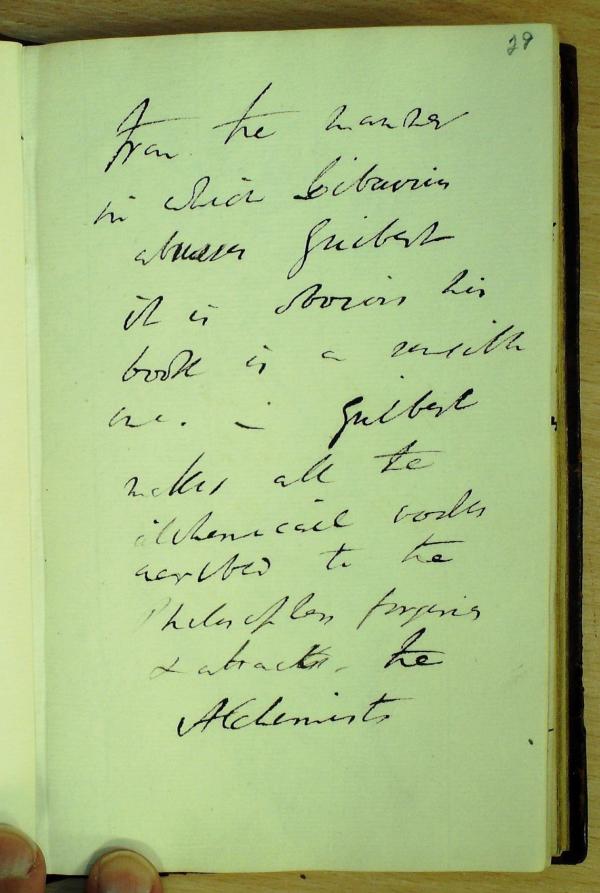 29
From the manner
in which Libavius
abuses Guibert
it is obvious his
book is a sensible
one. — Guibert
makes all the
alchemical works
ascribed to the
Philosophers forgeries
& attacks the
Alchemists